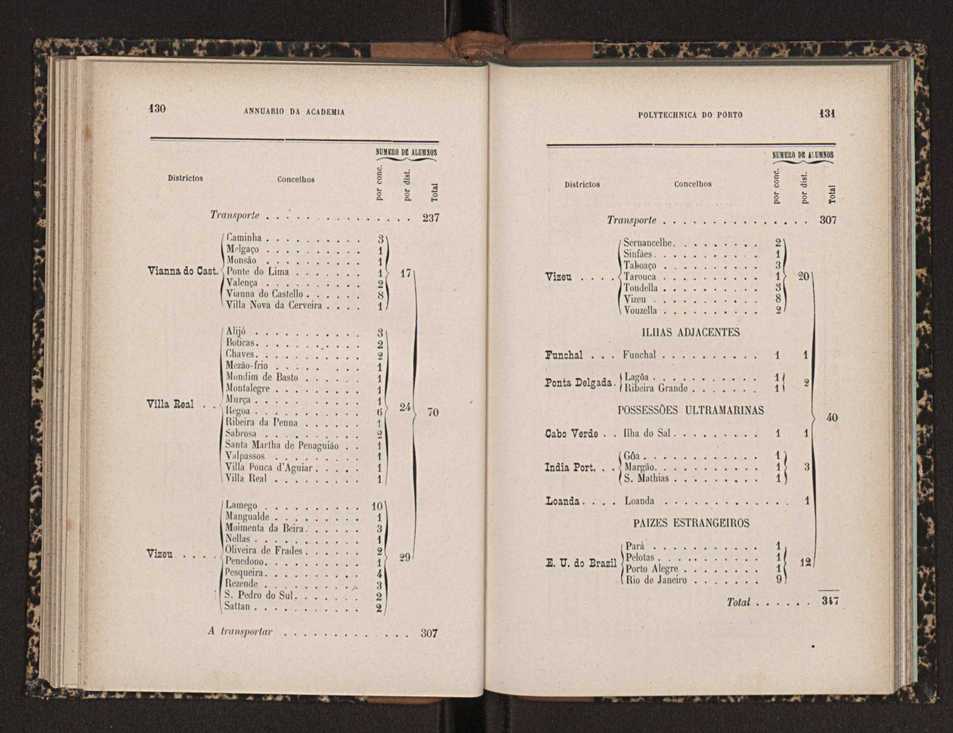 130
ANNUARIO DA ACADEMIA
NUMERO DE ALUMNOS
Districtos Concelhos por conc. por dist. Total
Transporte . . . . . . . . . . . . . . . 237
Caminha . . . . . . . . . . 3
Melgaço . . . . . . . . . . 1
Monsão . . . . . . . . . . 1
Vianna do Cast. Ponte do Lima . . . . . . . 1 17
Valença . . . . . . . . . . 2
Vianna do Castello . . . . . . 8
Villa Nova da Cerveira . . . . 1
Alijó . . . . . . . . . . . 3
Boticas . . . . . . . . . . 2
Chaves . . . . . . . . . . 2
Mezão-frio . . . . . . . . . 1
Mondim de Basto . . . . . . 1
Montalegre . . . . . . . . . 1
Murça . . . . . . . . . . . 1
Villa Real . . 24
Regoa . . . . . . . . . . . 6 70
Ribeira da Penna . . . . . . 1
Sabrosa . . . . . . . . . . 2
Santa Martha de Penaguião . . 1
Valpassos . . . . . . . . . 1
Villa Pouca d'Aguiar . . . . . 1
Villa Real . . . . . . . . . 1
Lamego . . . . . . . . . . 10
Mangualde . . . . . . . . . 1
Moimenta da Beira . . . . . . 3
Nellas . . . . . . . . . . . 1
Oliveira de Frades . . . . . . 2
Vizeu . . . . . Penedono . . . . . . . . . . 1 29
Pesqueira . . . . . . . . . . 4
Rezende . . . . . . . . . . 3
S. Pedro do Sul . . . . . . . 2
Sattan . . . . . . . . . . . 2
A transportar . . . . . . . . . . . . . 307
POLYTECHNICA DO PORTO
131
NUMERO DE ALUMNOS
Districtos Concelhos por conc. por dist. Total
Transporte . . . . . . . . . . . . . . . 307
Sernancelhe . . . . . . . . . 2
Sinfães . . . . . . . . . . . 1
Taboaço . . . . . . . . . . 3
Vizeu . . . . . Tarouca . . . . . . . . . . 1 20
Tondella . . . . . . . . . . 3
Vizeu . . . . . . . . . . . 8
Vouzella . . . . . . . . . . 2
ILHAS ADJACENTES
Funchal . . . Funchal . . . . . . . . . . 1 1
Lagôa . . . . . . . . . . . 1
Ponta Delgada. 2
Ribeira Grande . . . . . . . 1
POSSESSÕES ULTRAMARINAS
40
Cabo Verde . . Ilha do Sal . . . . . . . . . 1 1
Gôa . . . . . . . . . . . . 1
India Port. . . Margão . . . . . . . . . . . 1 3
S. Mathias . . . . . . . . . 1
Loanda . . . . Loanda . . . . . . . . . . . . . 1
PAIZES ESTRANGEIROS
Pará . . . . . . . . . . . 1
Pelotas . . . . . . . . . . . 1
E. U. do Brazil 12
Porto Alegre . . . . . . . . 1
Rio de Janeiro . . . . . . . 9
Total . . . . . . 347